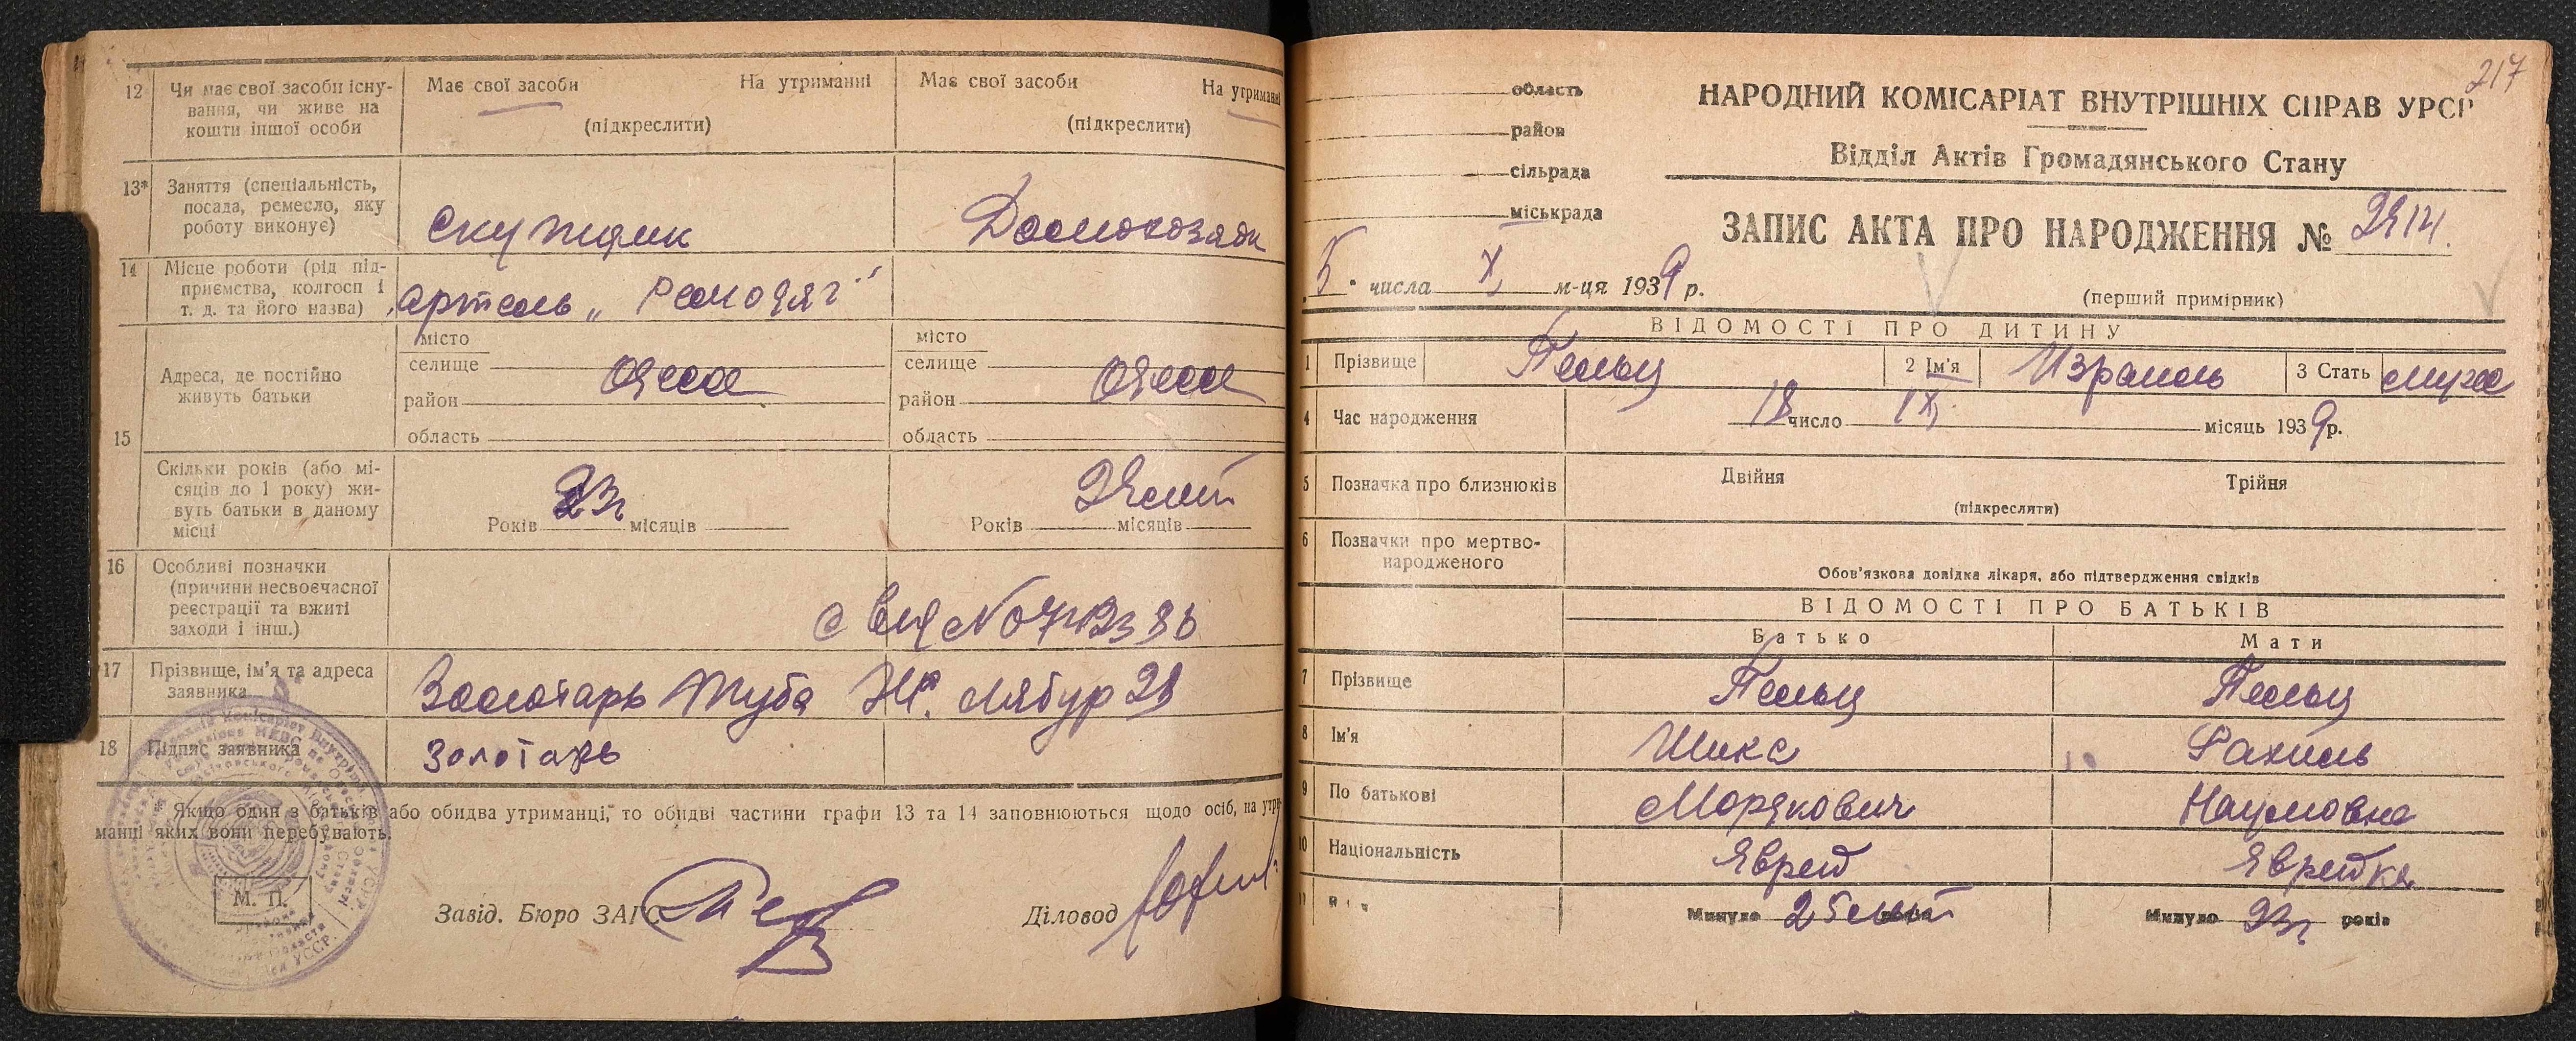 12 Чи має свої засоби існу-
вання, чи живе на
кошти іншої особи
Має свої засоби На утриманні
(підкреслити)
Має свої засоби На утриманні
(підкреслити)
13* Заняття (спеціальність,
посада, ремесло, яку
роботу виконує)
14 Місце роботи (рід під-
приємства, колгосп і
т. д. та його назва)
артель „
15 Адреса, де постійно
живуть батьки
місто
селище Одесса
район
область
місто
селище Одесса
район
область
Скільки років (або мі-
сяців до 1 року) жи-
вуть батьки в даному
місці
Років 23г місяців
Років місяців
16 Особливі позначки
(причини несвоєчасної
реєстрації та вжиті
заходи і інш.)
17 Прізвище, ім'я та адреса
заявника
Золотарь Туба
18 Підпис заявника
Золотарь
* Якщо один з батьків або обидва утриманці, то обидві частини графи 13 та 14 заповнюються щодо осіб, на утри-
манці яких вони перебувають.
М. П.
Завід. Бюро ЗАГС
Діловод
217
область
район
сільрада
міськрада
НАРОДНИЙ КОМІСАРІАТ ВНУТРІШНІХ СПРАВ УРСР
Відділ Актів Громадянського Стану
ЗАПИС АКТА ПРО НАРОДЖЕННЯ №
5 числа X м-ця 1939 р.
(перший примірник)
ВІДОМОСТІ ПРО ДИТИНУ
1 Прізвище Пельц 2 Ім'я Израиль 3 Стать муж
4 Час народження 18 число IX місяць 1939 р.
5 Позначка про близнюків Двійня Трійня
(підкреслити)
6 Позначки про мертво-
народженого
Обов'язкова довідка лікаря, або підтвердження свідків
ВІДОМОСТІ ПРО БАТЬКІВ
Батько Мати
7 Прізвище Пельц Пельц
8 Ім'я Шика Рахиль
9 По батькові Мордкович Наумовна
10 Національність Еврей Еврейка
Минуло 25 лет Минуло 23г років